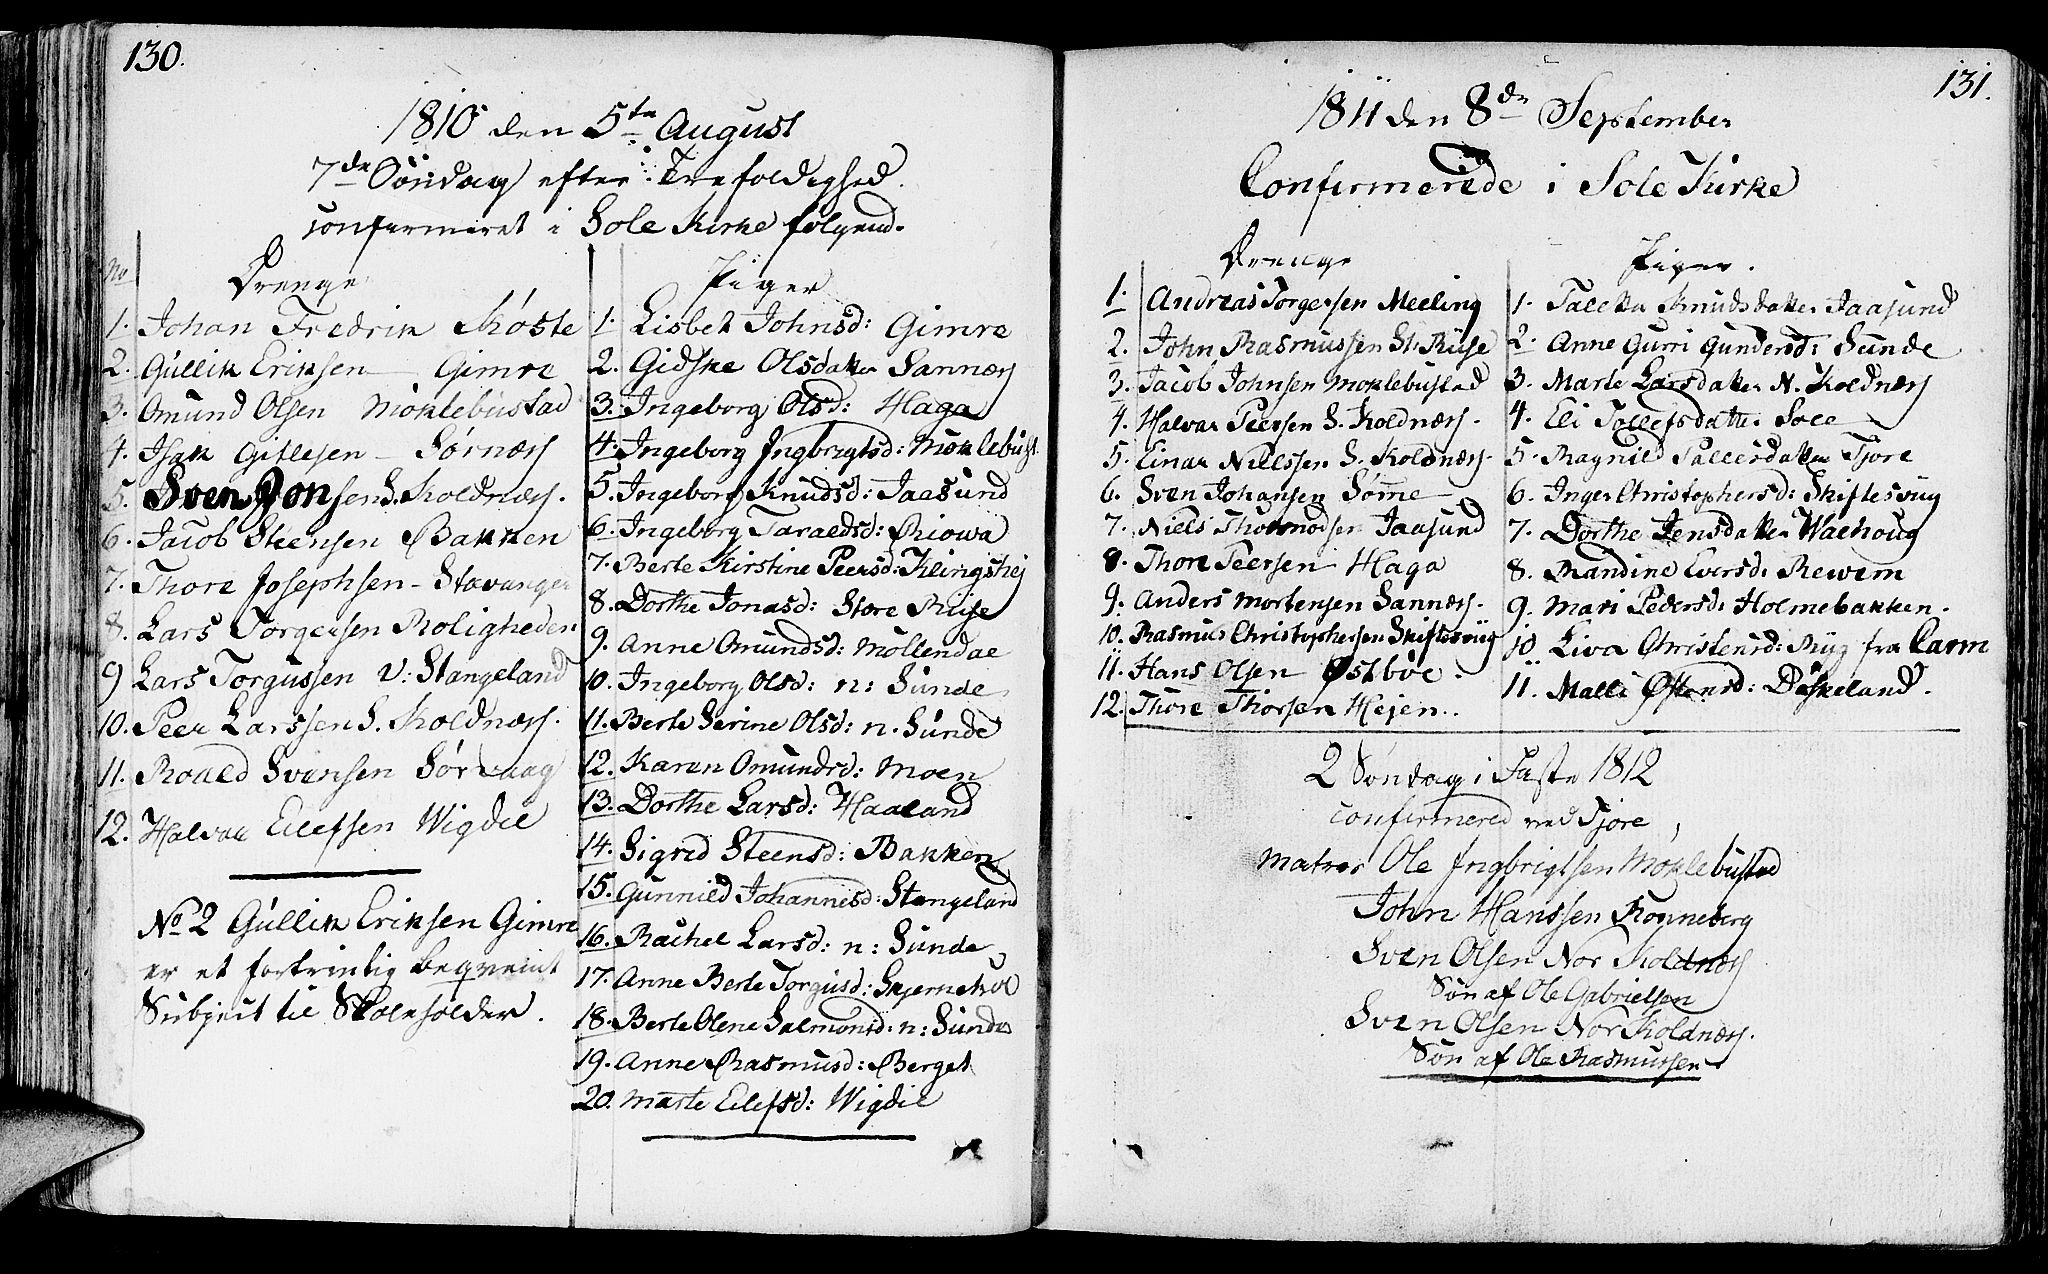 130.
1810 den 5te August
7de Søndag efter Trefoldighed.
confirmeret i Sole Kirke følgend.
No
Drenge
1. Johan Fredrik Køste
2. Gullik Eriksen Gimre
3. Omund Olsen Moklebustad
4. Isak Gitlesen Sørnæss
5. Sven Jonsen S. Koldnæss.
6. Jacob Steensen Bakken
7. Thore Josephsen - Stavanger
8. Lars Torgersen Roligheden
9 Lars Torgussen v: Stangeland
10. Peer Larssen S. Koldnæss.
11. Roald Svensen Sørvaag
12. Halvar Eilefsen Wigdel
No 2 Gullik Eriksen Gimre
er et fortrinlig beqvemt
Subject til Skoleholder.
Piger
1. Lisbet Johnsd: Gimre
2. Gidske Olsdatter Sannæss
3. Ingeborg Olsd: Haga
4. Ingeborg Ingbrigtsd: Moklebust
5. Ingeborg Knudsd: Jaasund
6. Ingeborg Taraldsd: Riowa
7. Berte Kirstine Peersd: Klingshej
8. Dorthe Jonasd: Store Ruse
9. Anne Omundsd: Mollendal
10. Ingeborg Olsd: n: Sunde
11. Berte Serine Olsd: n. Sunde
12. Karen Omundsd: Moen
13. Dorthe Larsd: Haaland
14. Sigrid Steensd: Bakken
15. Gunnild Johannesd: Stangeland
16. Rachel Larsd: n: Sunde
17. Anne Berte Torgusd: Skjernehol
18. Berte Olene Salmonsd: n: Sunde
19. Anne Rasmusd: Berget
20. Marte Eilefsd: Wigdel
131.
1811 den 8de September
Confirmerede i Sole Kirke
Drenge
1. Andreas Torgersen Meeling
2. John Rasmussen St. Ruse
3. Jacob Johnsen Moklebustad
4. Halvar Peersen S. Koldnæss.
5. Einar Nielssen S. Koldnæss.
6. Sven Johansen Sømme
7. Niels Thormodsen Jaasund
8. Thore Peersen Haga
9. Anders Mortensen Sannæss.
10. Rasmus Christophersen Skiftesvug
11. Hans Olsen Østbøe.
12. Thore Thorsen Hejen.
Piger.
1. Taletta Knudsdatter Jaasund
2. Anne Gurri Gundersd: Sunde
3. Marte Larsdatter N. Koldnæss
4. Eli Tollefsdatter Sole
5. Ragnild Pallesdatter Tjore
6. Inger Christophersd: Skiftesvug
7. Dorthe Jensdatter Walhoug
8. Randine Eversd: Rewem
9. Mari Pedersd: Holmebakken.
10 Liva Christensd: Ryg fra Carm
11. Malli Østensd: Dyskeland.
2 Søndag i Faste 1812
confirmered ved Tjore
Matros Ole Ingbrigtsen Moklebustad
John Hanssen Ronneberg
Sven Olsen Nor Koldnæss
Søn af Ole Gabrielsen
Sven Olsen Nor Koldnæss.
Søn af Ole Rasmussen